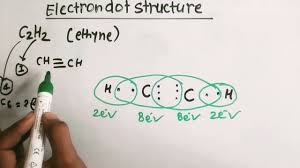 Electron dot structure
C₂H₂ (ethyne)
CH≡CH
H C C H
2e⁻ 8e⁻ 8e⁻ 2e⁻